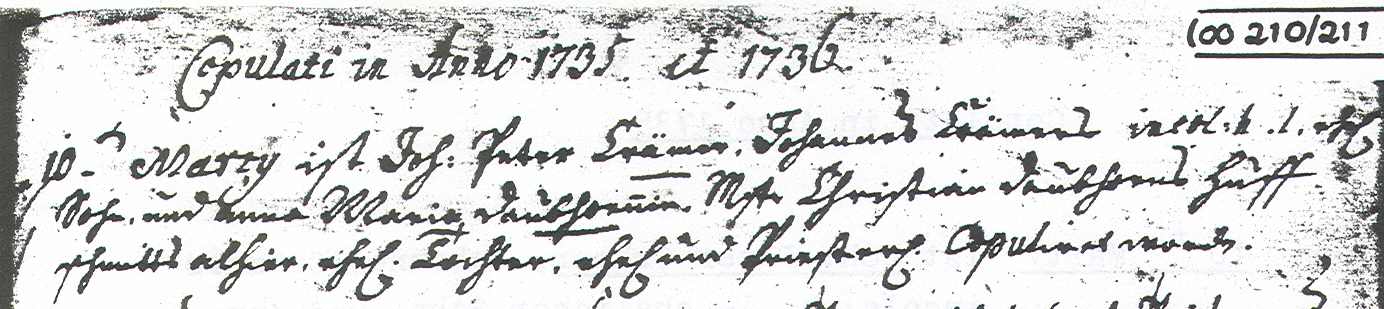 (oo 210/211
Copulati in Anno 1735 et 1736.
10.d Marty ist Joh: Peter Crämer, Johannes Crämers incol: h. l. ehel
Sohn, und Anna Maria Daubhornin Mstr Christian Daubhorns Huff
schmitts alhier, ehel. Tochter, ehel und Priesterl. Copuliret word.